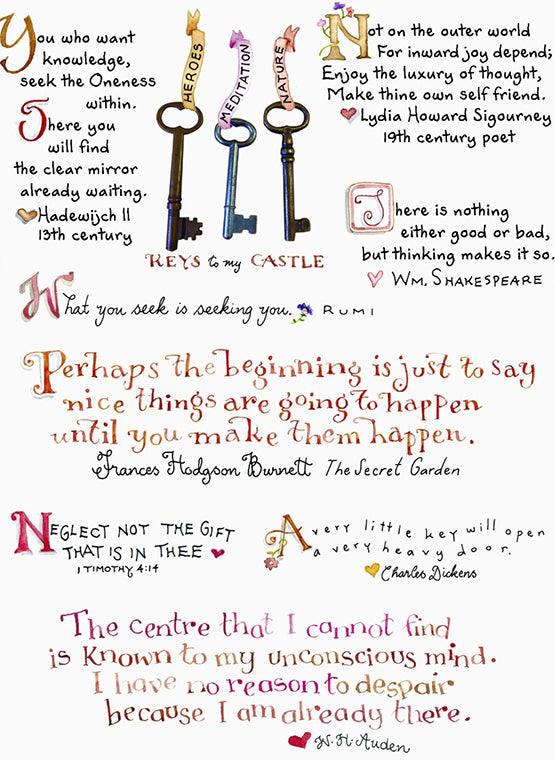 You who want
knowledge,
seek the Oneness
within.
There you
will find
the clear mirror
already waiting.
Hadewijch II
13th century
HEROES
MEDITATION
NATURE
KEYS to my CASTLE
Not on the outer world
For inward joy depend;
Enjoy the luxury of thought,
Make thine own self friend.
Lydia Howard Sigourney
19th century poet
There is nothing
either good or bad,
but thinking makes it so.
WM. SHAKESPEARE
What you seek is seeking you. RUMI
Perhaps the beginning is just to say
nice things are going to happen
until you make them happen.
Frances Hodgson Burnett The Secret Garden
NEGLECT NOT THE GIFT
THAT IS IN THEE
1 TIMOTHY 4:14
A very little key will open
a very heavy door.
Charles Dickens
The centre that I cannot find
is known to my unconscious mind.
I have no reason to despair
because I am already there.
W. H. Auden